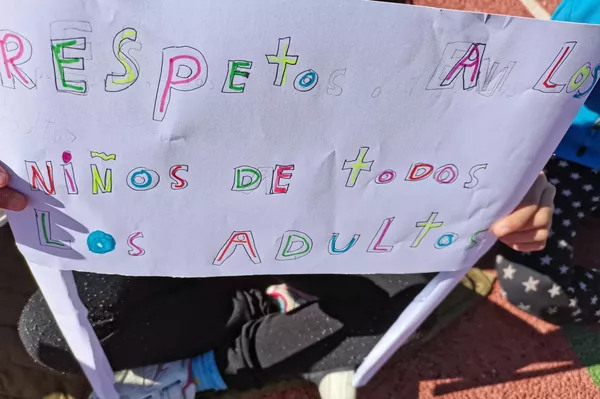 RESPEtos. A Los
NiÑos DE toDos
Los ADULtos